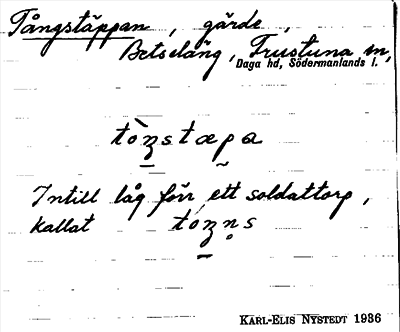 Tångstäppan, gärde,
Betseläng, Frustuna sn,
Daga hd, Södermanlands l.
tòŋstæpa
Intill låg förr ett soldattorp,
kallat tóŋns
KARL-ELIS NYSTEDT 1936